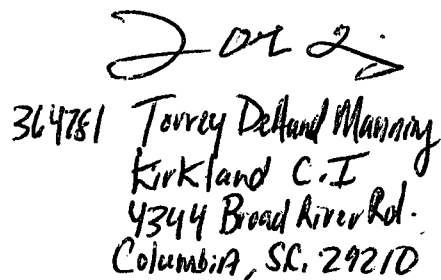 364781 Torrey Manning
Kirkland C.I
4344 Broad River Rd.
Columbia, S.C. 29210